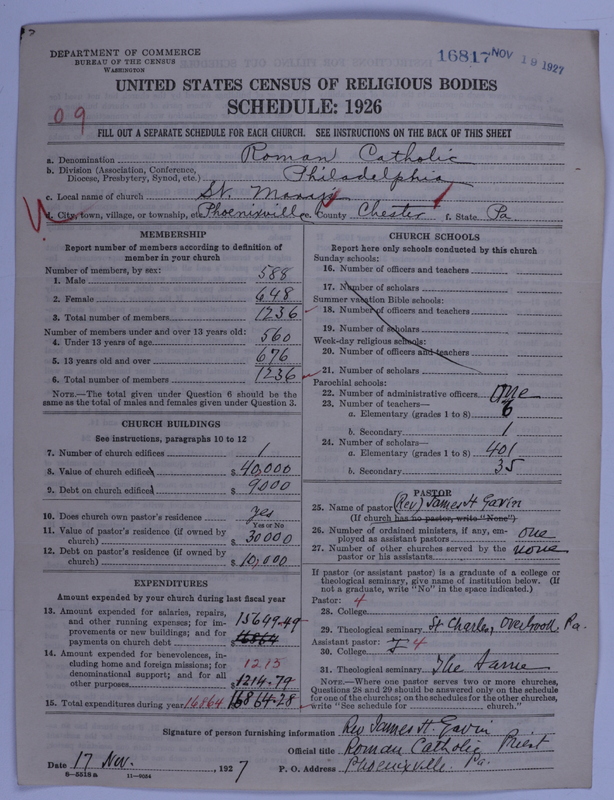 DEPARTMENT OF COMMERCE
BUREAU OF THE CENSUS
WASHINGTON
16817 NOV 19 1927
UNITED STATES CENSUS OF RELIGIOUS BODIES
SCHEDULE: 1926
09
FILL OUT A SEPARATE SCHEDULE FOR EACH CHURCH. SEE INSTRUCTIONS ON THE BACK OF THIS SHEET
a. Denomination Roman Catholic
b. Division (Association, Conference, Diocese, Presbytery, Synod, etc.) Philadelphia
c. Local name of church St. Mary's
d. City, town, village, or township, etc. Phoenixville e. County Chester f. State Pa.
MEMBERSHIP
Report number of members according to definition of
member in your church
Number of members, by sex:
1. Male 588
2. Female 648
3. Total number of members 1236
Number of members under and over 13 years old:
4. Under 13 years of age 560
5. 13 years old and over 676
6. Total number of members 1236
NOTE.—The total given under Question 6 should be
same as the total of males and females given under Question 3.
CHURCH BUILDINGS
See instructions, paragraphs 10 to 12
7. Number of church edifices 1
8. Value of church edifices $ 40,000
9. Debt on church edifices $ 9000
10. Does church own pastor's residence yes
Yes or No
11. Value of pastor's residence (if owned by
church) $ 30000
12. Debt on pastor's residence (if owned by
church) $ 10,000
EXPENDITURES
Amount expended by your church during last fiscal year
13. Amount expended for salaries, repairs,
and other running expenses; for im-
provements or new buildings; and for
payments on church debt $ 15649.49
14. Amount expended for benevolences, in-
cluding home and foreign missions; for
denominational support; and for all
other purposes $ 1214.79
1215
15. Total expenditures during year 16864 $ 16864.28
CHURCH SCHOOLS
Report here only schools conducted by this church
Sunday schools:
16. Number of officers and teachers
17. Number of scholars
Summer vacation Bible schools:
18. Number of officers and teachers
19. Number of scholars
Week-day religious schools:
20. Number of officers and teachers
21. Number of scholars
Parochial schools:
22. Number of administrative officers One
23. Number of teachers—
a. Elementary (grades 1 to 8) 6
b. Secondary 1
24. Number of scholars—
a. Elementary (grades 1 to 8) 401
b. Secondary 35
PASTOR
25. Name of pastor (Rev) James H Gavin
(If church has no pastor, write "None")
26. Number of ordained ministers, if any, em-
ployed as assistant pastors one
27. Number of other churches served by the
pastor or his assistants none
If pastor (or assistant pastor) is a graduate of a college or
theological seminary, give name of institution below. (If
not a graduate, write "No" in the space indicated.)
Pastor: 4
28. College
29. Theological seminary St Charles, Overbrook, Pa.
Assistant pastor: 4
30. College
31. Theological seminary The Same
NOTE.—Where one pastor serves two or more churches,
Questions 28 and 29 should be answered only on the schedule
for one of the churches; on the schedules for the other churches,
write "See schedule for church."
Signature of person furnishing information Rev James H. Gavin
Official title Roman Catholic Priest
Date 17 Nov. , 1927 P. O. Address Phoenixville. Pa.
8-5518 a 11-9084